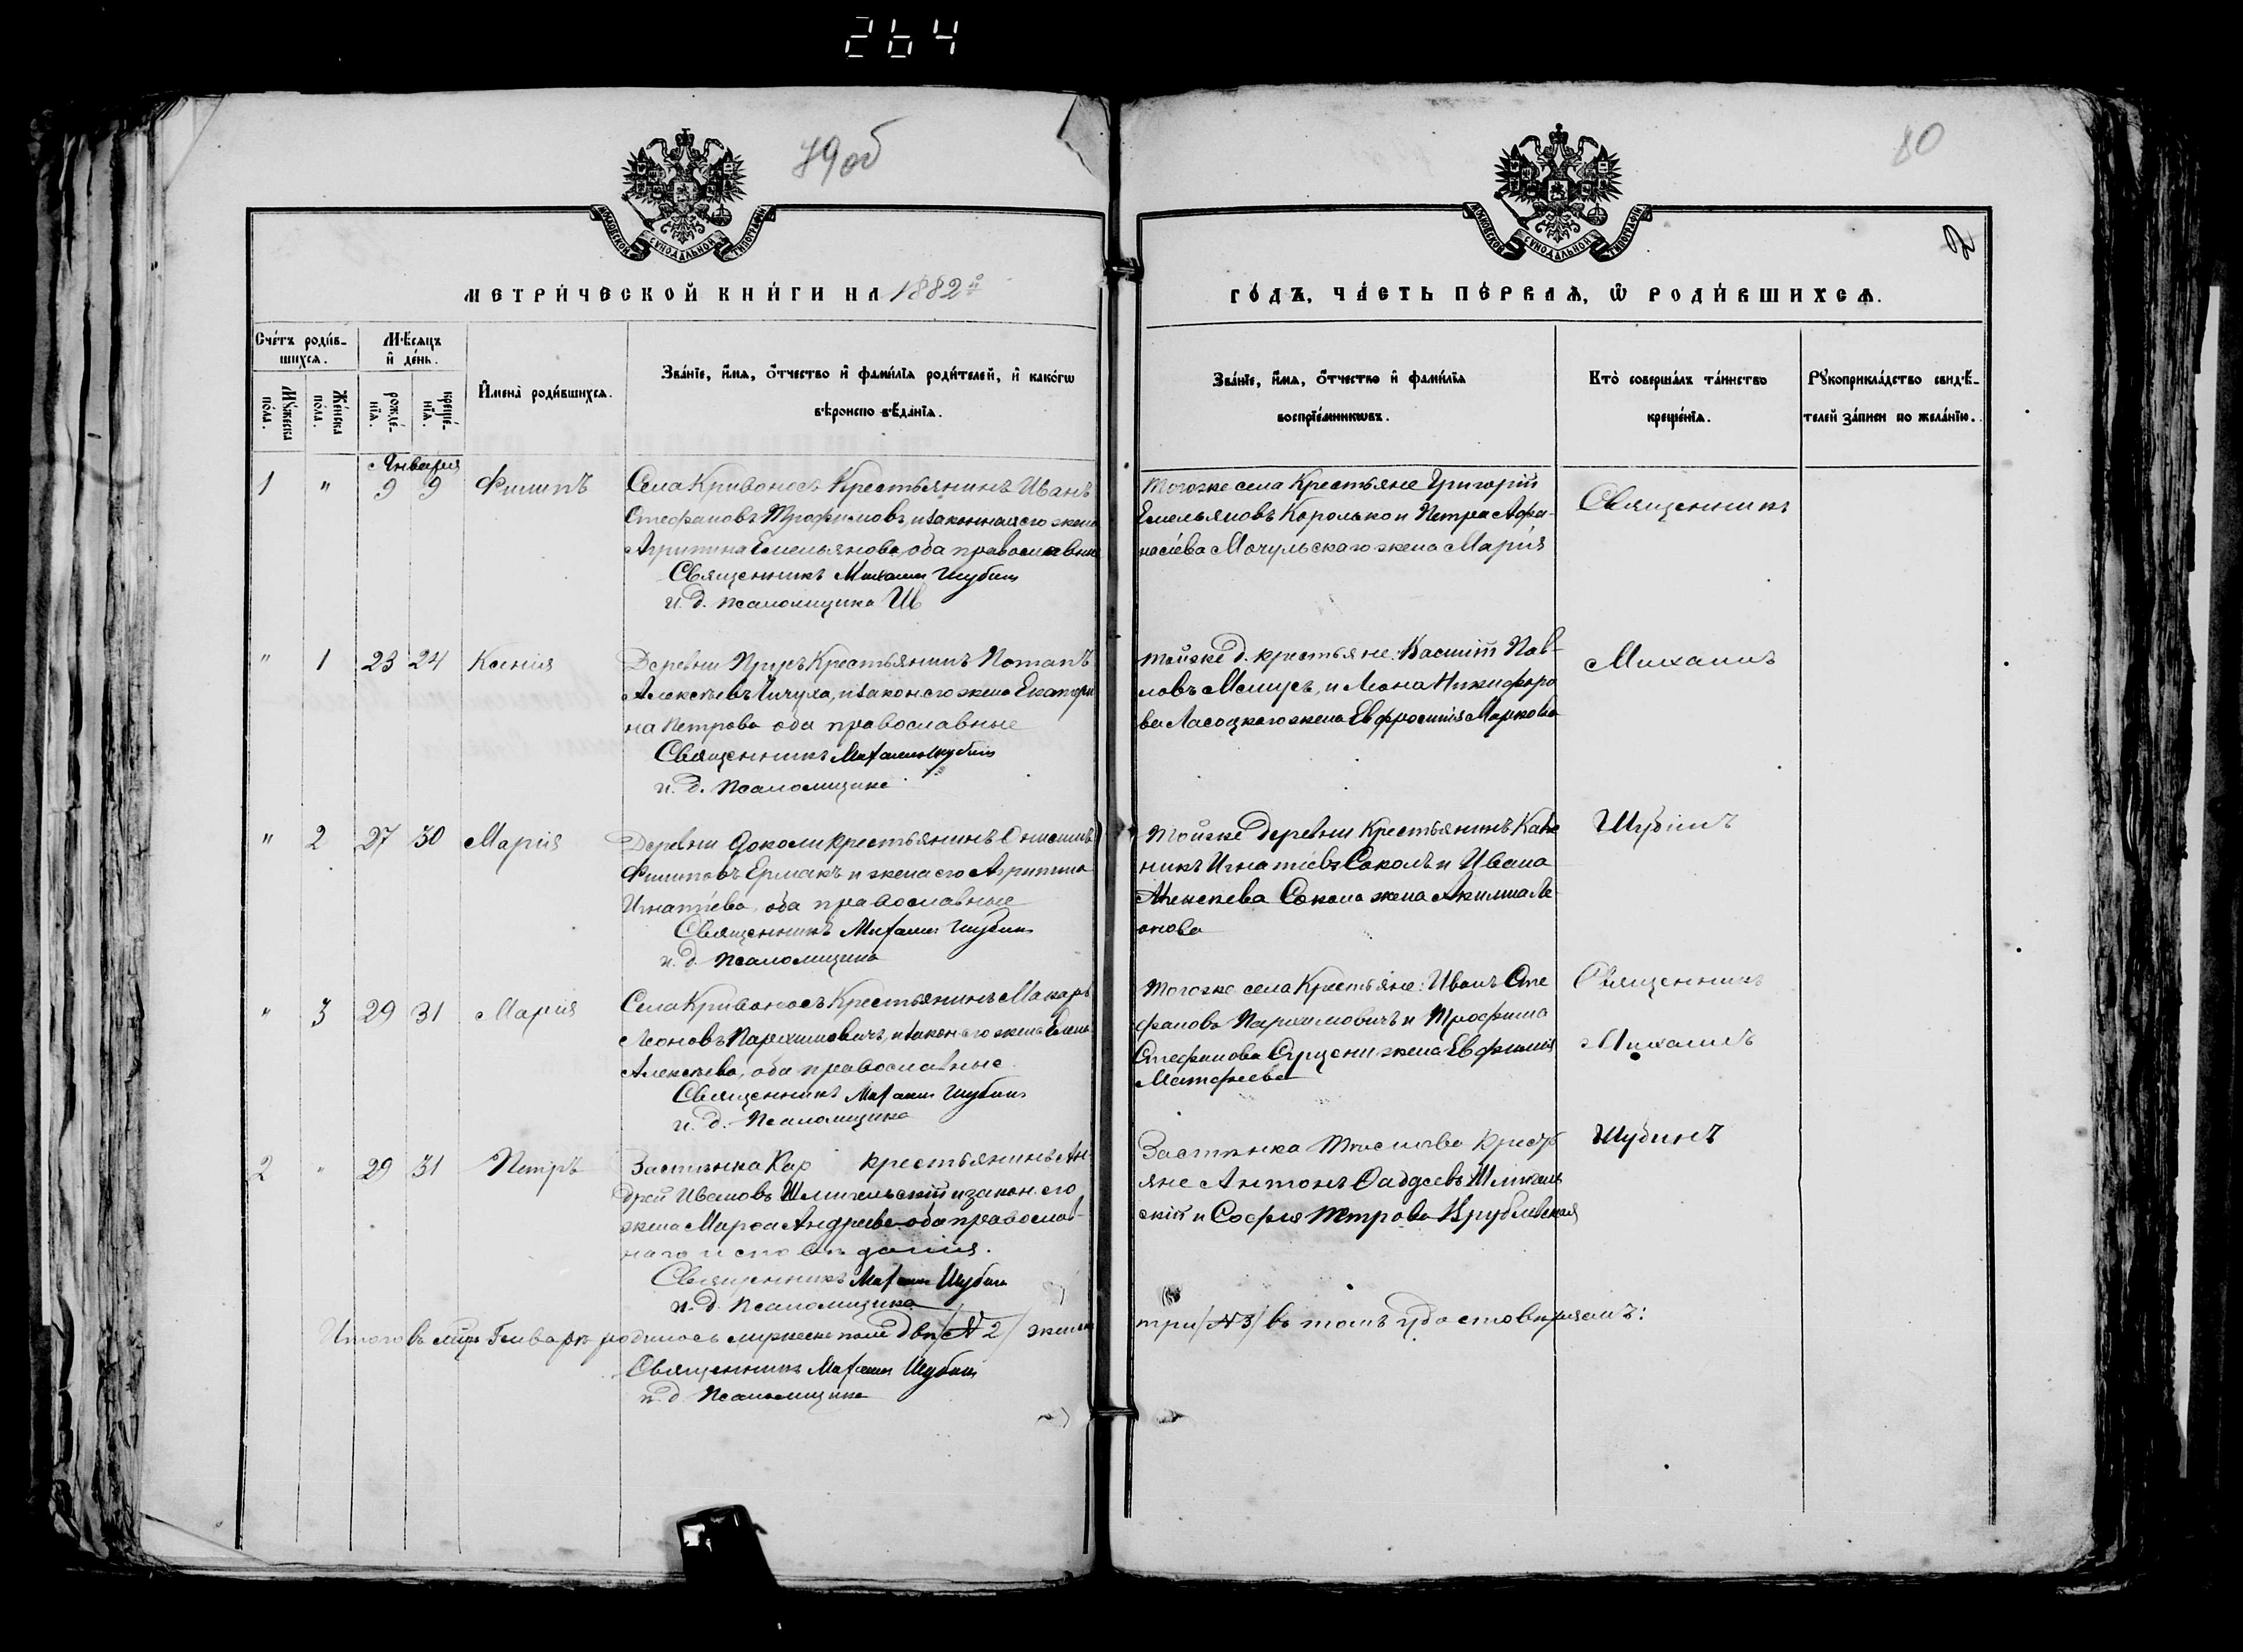 264
79об
80
2
МОСКОВСКОЙ СУНОДАЛЬНОЙ ТИПОГРАФІИ
МОСКОВСКОЙ СУНОДАЛЬНОЙ ТИПОГРАФІИ
МЕТРИ́ЧЕСКОЙ КНИ́ГИ НА 1882й
ГО́ДЪ, ЧА́СТЬ ПЕ́РВАѦ, Ѿ РОДИ́ВШИХСѦ.
Сче́тъ роди́вшихсѧ.
Мꙋ́жеска по́ла.
Же́нска по́ла.
Мѣ́сѧцъ и҆ де́нь.
рожде́нїѧ.
креще́нїѧ.
И҆мена̀ роди́вшихсѧ.
Зва́нїе, и҆́мѧ, ѻ҆́тчество и҆ фами́лїѧ роди́телей, и҆ како́гѡ
вѣроисповѣ́данїѧ.
Зва́нїе, и҆́мѧ, ѻ҆́тчество и҆ фами́лїѧ
воспрїе́мникѡвъ.
Кто̀ соверша́лъ та́инство
креще́нїѧ.
Рꙋкоприкла́дство свидѣ́телей за́писи по жела́нїю.
Января
1 " 9 9 Филипъ
Села Кривоносъ Крестьянинъ Иванъ
Стефановъ Трофимовъ, и законная его жена
Агрипина Емельянова, оба православные
Священникъ Михаилъ Шубинъ
и. д. псаломщика Ив
Тогоже села Крестьяне Григорій
Емельяновъ Королько и Петра Афа-
насіева Мочульскаго жена Марія
Священникъ
" 1 23 24 Ксенія
Деревни Прусъ Крестьянинъ Потапъ
Алексѣевъ Чичуха, и закон его жена Екатери
на Петрова оба православные
Священникъ Михаилъ Шубинъ
и. д. Псаломщика
Тойже д. крестьяне: Василій Пав-
ловъ и Леона Никифоро
ва Ласоцкаго жена Евфросинія Маркова
Михаилъ
" 2 27 30 Марія
Деревни крестьянинъ Онисимъ
Филиповъ Ермакъ и жена его Агрипина
Игнатіева, оба православные
Священникъ Михаилъ Шубинъ
и. д. Псаломщика
Тойже деревни Крестьянинъ
никъ Игнатіевъ Соколъ и Ивана
Алексѣева Сокола жена Акилина Ле
онова
Шубинъ
" 3 29 31 Марія
Села Кривоносъ Крестьянинъ Макаръ
Леоновъ Пархимовичъ, и закон его жена Елена
Алексѣева, оба православные
Священникъ Михаилъ Шубинъ
и. д. Псаломщика
Тогоже села Крестьяне: Иванъ Сте
фановъ Пархимовичъ и Трофима
Стефанова жена Евфимія
Матфеева
Священникъ
Михаилъ
2 " 29 31 Петръ
Застѣнка Кар крестьянинъ Ан-
дрей Ивановъ Шмигельскій и закон. его
жена Марѳа Андреева оба православ-
наго исповѣданія.
Священникъ Михаилъ Шубинъ
и. д. Псаломщика
Застѣнка крестья
яне Антонъ Ѳаддеевъ
скій и Софія Петрова Врублевская
Шубинъ
Итого въ мцѣ Генварѣ родилось мужеска пола два /№ 2/ женска
три /№ 3/ въ томъ удостовѣряемъ:
Священникъ Михаилъ Шубинъ
и. д. Псаломщика